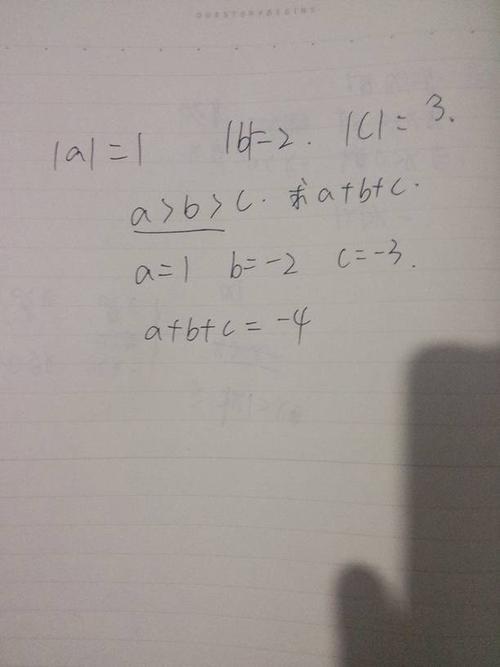 |a|=1 |b|=2. |c|=3.
a>b>c. 求a+b+c.
a=1 b=-2 c=-3.
a+b+c=-4